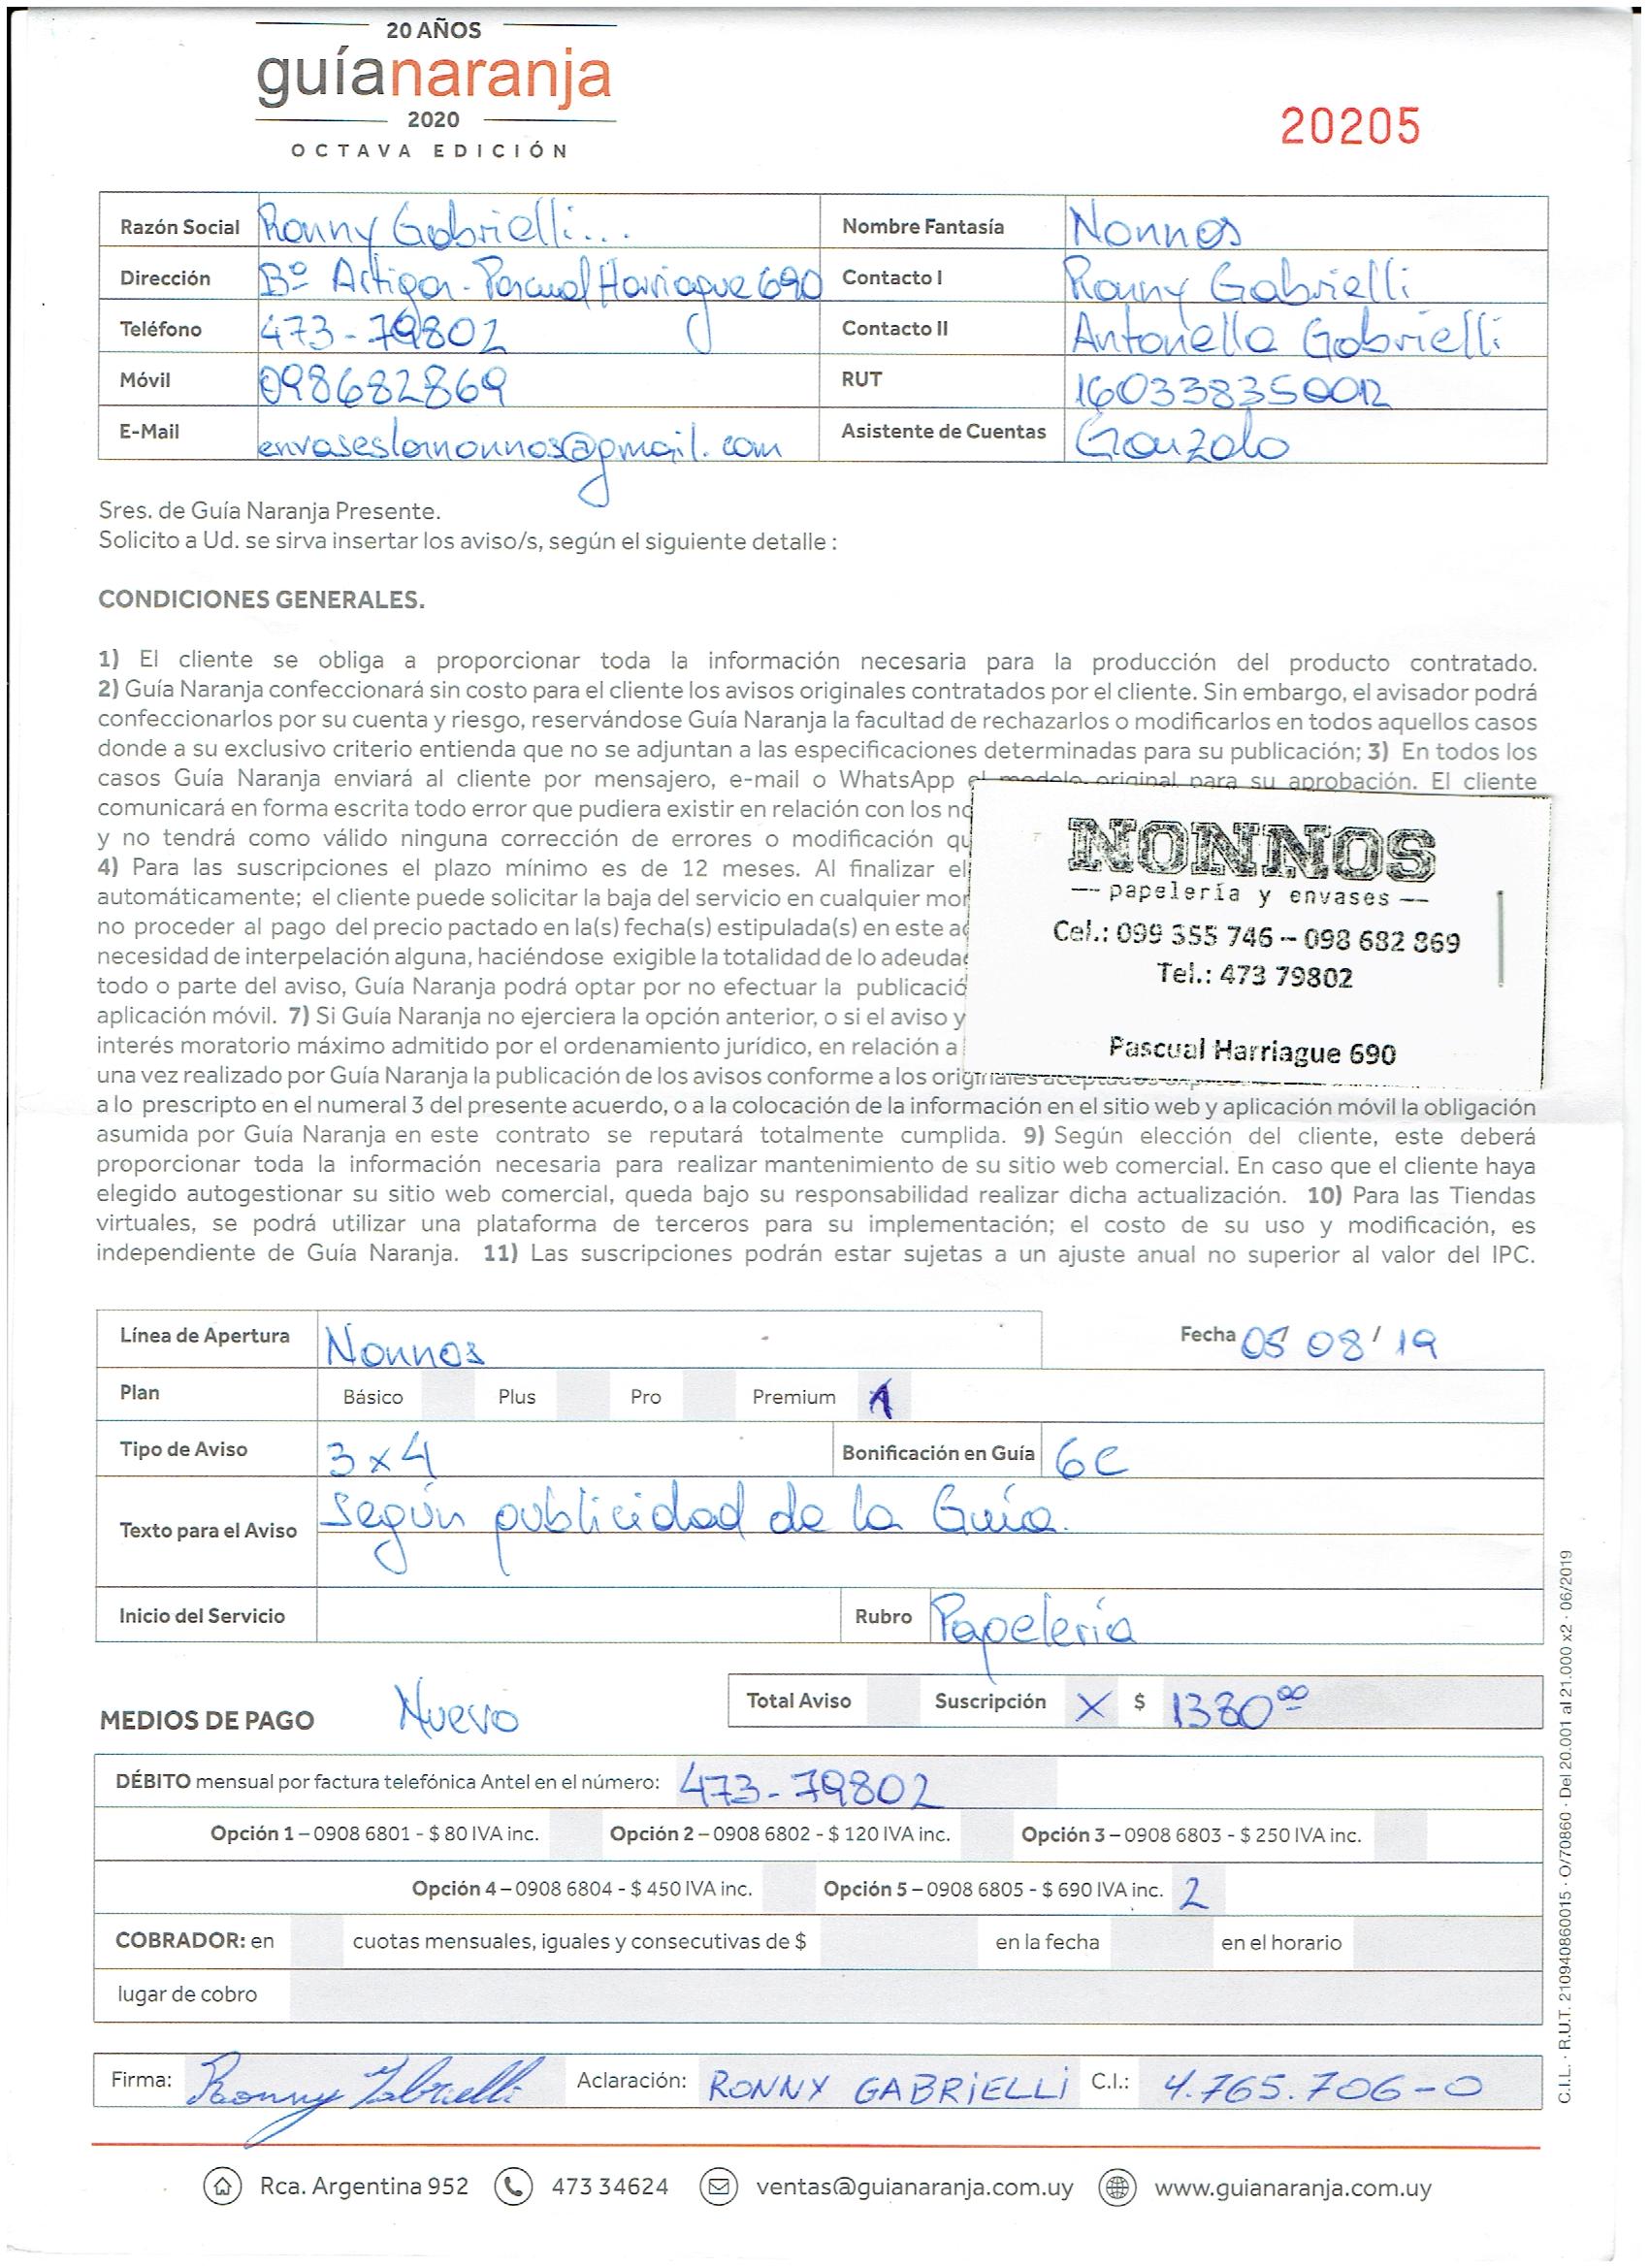 20 AÑOS
guíanaranja
2020
OCTAVA EDICIÓN
20205
Razón Social Ronny Gabrielli... Nombre Fantasía Nonnos
Dirección Bº Artigas - Pascual Harriague 690 Contacto I Ronny Gabrielli
Teléfono 473-79802 Contacto II Antonella Gabrielli
Móvil 098682869 RUT 160338350012
E-Mail envaseslosnonnos@gmail.com Asistente de Cuentas Gonzalo
Sres. de Guía Naranja Presente.
Solicito a Ud. se sirva insertar los aviso/s, según el siguiente detalle :
CONDICIONES GENERALES.
1) El cliente se obliga a proporcionar toda la información necesaria para la producción del producto contratado.
2) Guía Naranja confeccionará sin costo para el cliente los avisos originales contratados por el cliente. Sin embargo, el avisador podrá
confeccionarlos por su cuenta y riesgo, reservándose Guía Naranja la facultad de rechazarlos o modificarlos en todos aquellos casos
donde a su exclusivo criterio entienda que no se adjuntan a las especificaciones determinadas para su publicación; 3) En todos los
casos Guía Naranja enviará al cliente por mensajero, e-mail o WhatsApp el modelo original para su aprobación. El cliente
comunicará en forma escrita todo error que pudiera existir en relación con los
y no tendrá como válido ninguna corrección de errores o modificación
4) Para las suscripciones el plazo mínimo es de 12 meses. Al finalizar el
automáticamente; el cliente puede solicitar la baja del servicio en cualquier
no proceder al pago del precio pactado en la(s) fecha(s) estipulada(s) en este
necesidad de interpelación alguna, haciéndose exigible la totalidad de lo
todo o parte del aviso, Guía Naranja podrá optar por no efectuar la
aplicación móvil. 7) Si Guía Naranja no ejerciera la opción anterior, o si el aviso y
interés moratorio máximo admitido por el ordenamiento jurídico, en relación a
una vez realizado por Guía Naranja la publicación de los avisos conforme a los originales aceptados
a lo prescripto en el numeral 3 del presente acuerdo, o a la colocación de la información en el sitio web y aplicación móvil la obligación
asumida por Guía Naranja en este contrato se reputará totalmente cumplida. 9) Según elección del cliente, este deberá
proporcionar toda la información necesaria para realizar mantenimiento de su sitio web comercial. En caso que el cliente haya
elegido autogestionar su sitio web comercial, queda bajo su responsabilidad realizar dicha actualización. 10) Para las Tiendas
virtuales, se podrá utilizar una plataforma de terceros para su implementación; el costo de su uso y modificación, es
independiente de Guía Naranja. 11) Las suscripciones podrán estar sujetas a un ajuste anual no superior al valor del IPC.
NONNOS
-- papelería y envases --
Cel.: 099 355 746 -- 098 682 869
Tel.: 473 79802
Pascual Harriague 690
Línea de Apertura Nonnos Fecha 05 08/ 19
Plan Básico Plus Pro Premium
Tipo de Aviso 3x4 Bonificación en Guía 6C
Texto para el Aviso Según publicidad de la Guía.
Inicio del Servicio Rubro Papelería
MEDIOS DE PAGO Nuevo Total Aviso Suscripción X $ 1380ºº
DÉBITO mensual por factura telefónica Antel en el número: 473-79802
Opción 1 – 0908 6801 - $ 80 IVA inc. Opción 2 – 0908 6802 - $ 120 IVA inc. Opción 3 – 0908 6803 - $ 250 IVA inc.
Opción 4 – 0908 6804 - $ 450 IVA inc. Opción 5 – 0908 6805 - $ 690 IVA inc. 2
COBRADOR: en cuotas mensuales, iguales y consecutivas de $ en la fecha en el horario
lugar de cobro
Firma: Ronny Gabrielli Aclaración: RONNY GABRIELLI C.I.: 4.765.706-0
C.I.L. · R.U.T. 210940860015 · O/70860 · Del 20.001 al 21.000 x2 · 06/2019
Rca. Argentina 952 473 34624 ventas@guianaranja.com.uy www.guianaranja.com.uy